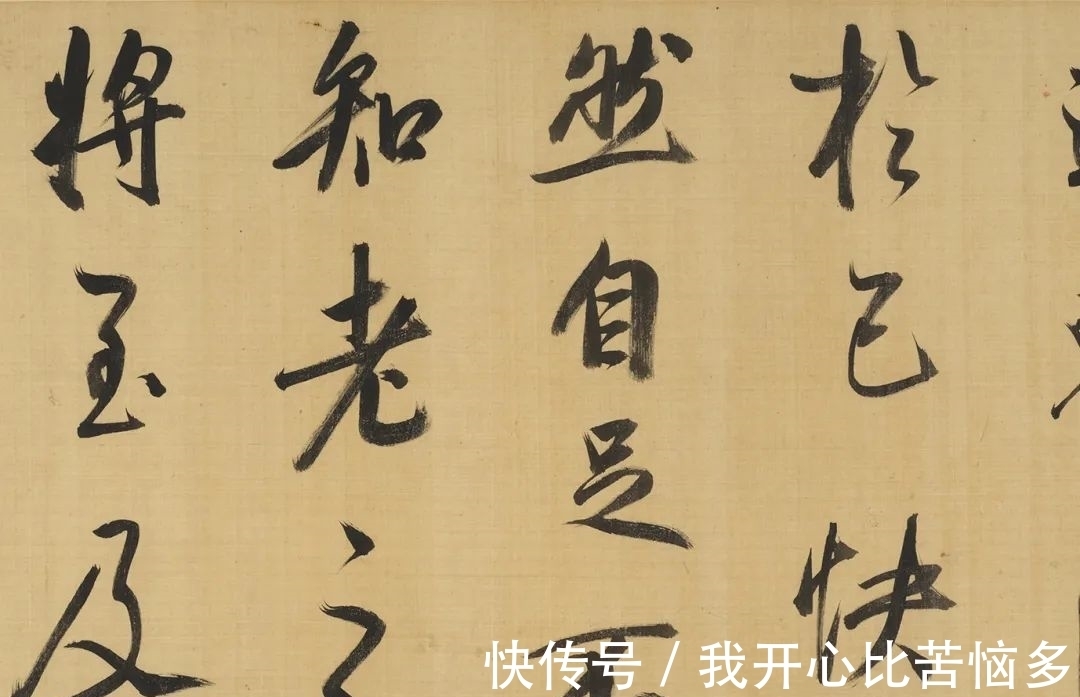 於己快
然自足不
知老之
将至及
快传号 / 我开心比苦恼多